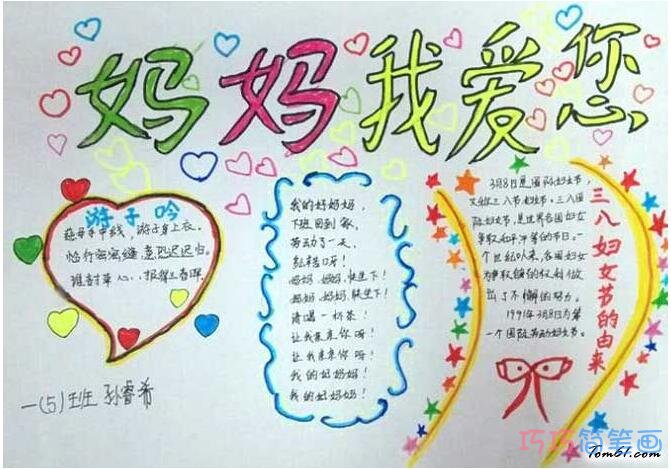 妈妈我爱您
游子吟
慈母手中线,游子身上衣。
临行密密缝,意恐迟迟归。
谁言寸草心,报得三春晖。
一(5)班 孙睿希
我的好妈妈,
下班回到家,
劳动了一天,
妈妈,妈妈,快坐下!
妈妈,妈妈,快坐下!
请喝一杯茶!
让我亲亲你呀!
让我亲亲你呀!
我的好妈妈!
我的好妈妈!
3月8日是国际妇女节,
又称三八节、妇女节、三八国
际妇女节,是世界各国妇女
争取和平平等的节日。一
个世纪以来,各国妇女
为争取她们的权利做
出了不懈的努力。
1991年3月8日为第
一个国际劳动妇女节。
三八妇女节的由来
巧巧简笔画
Tom61.com